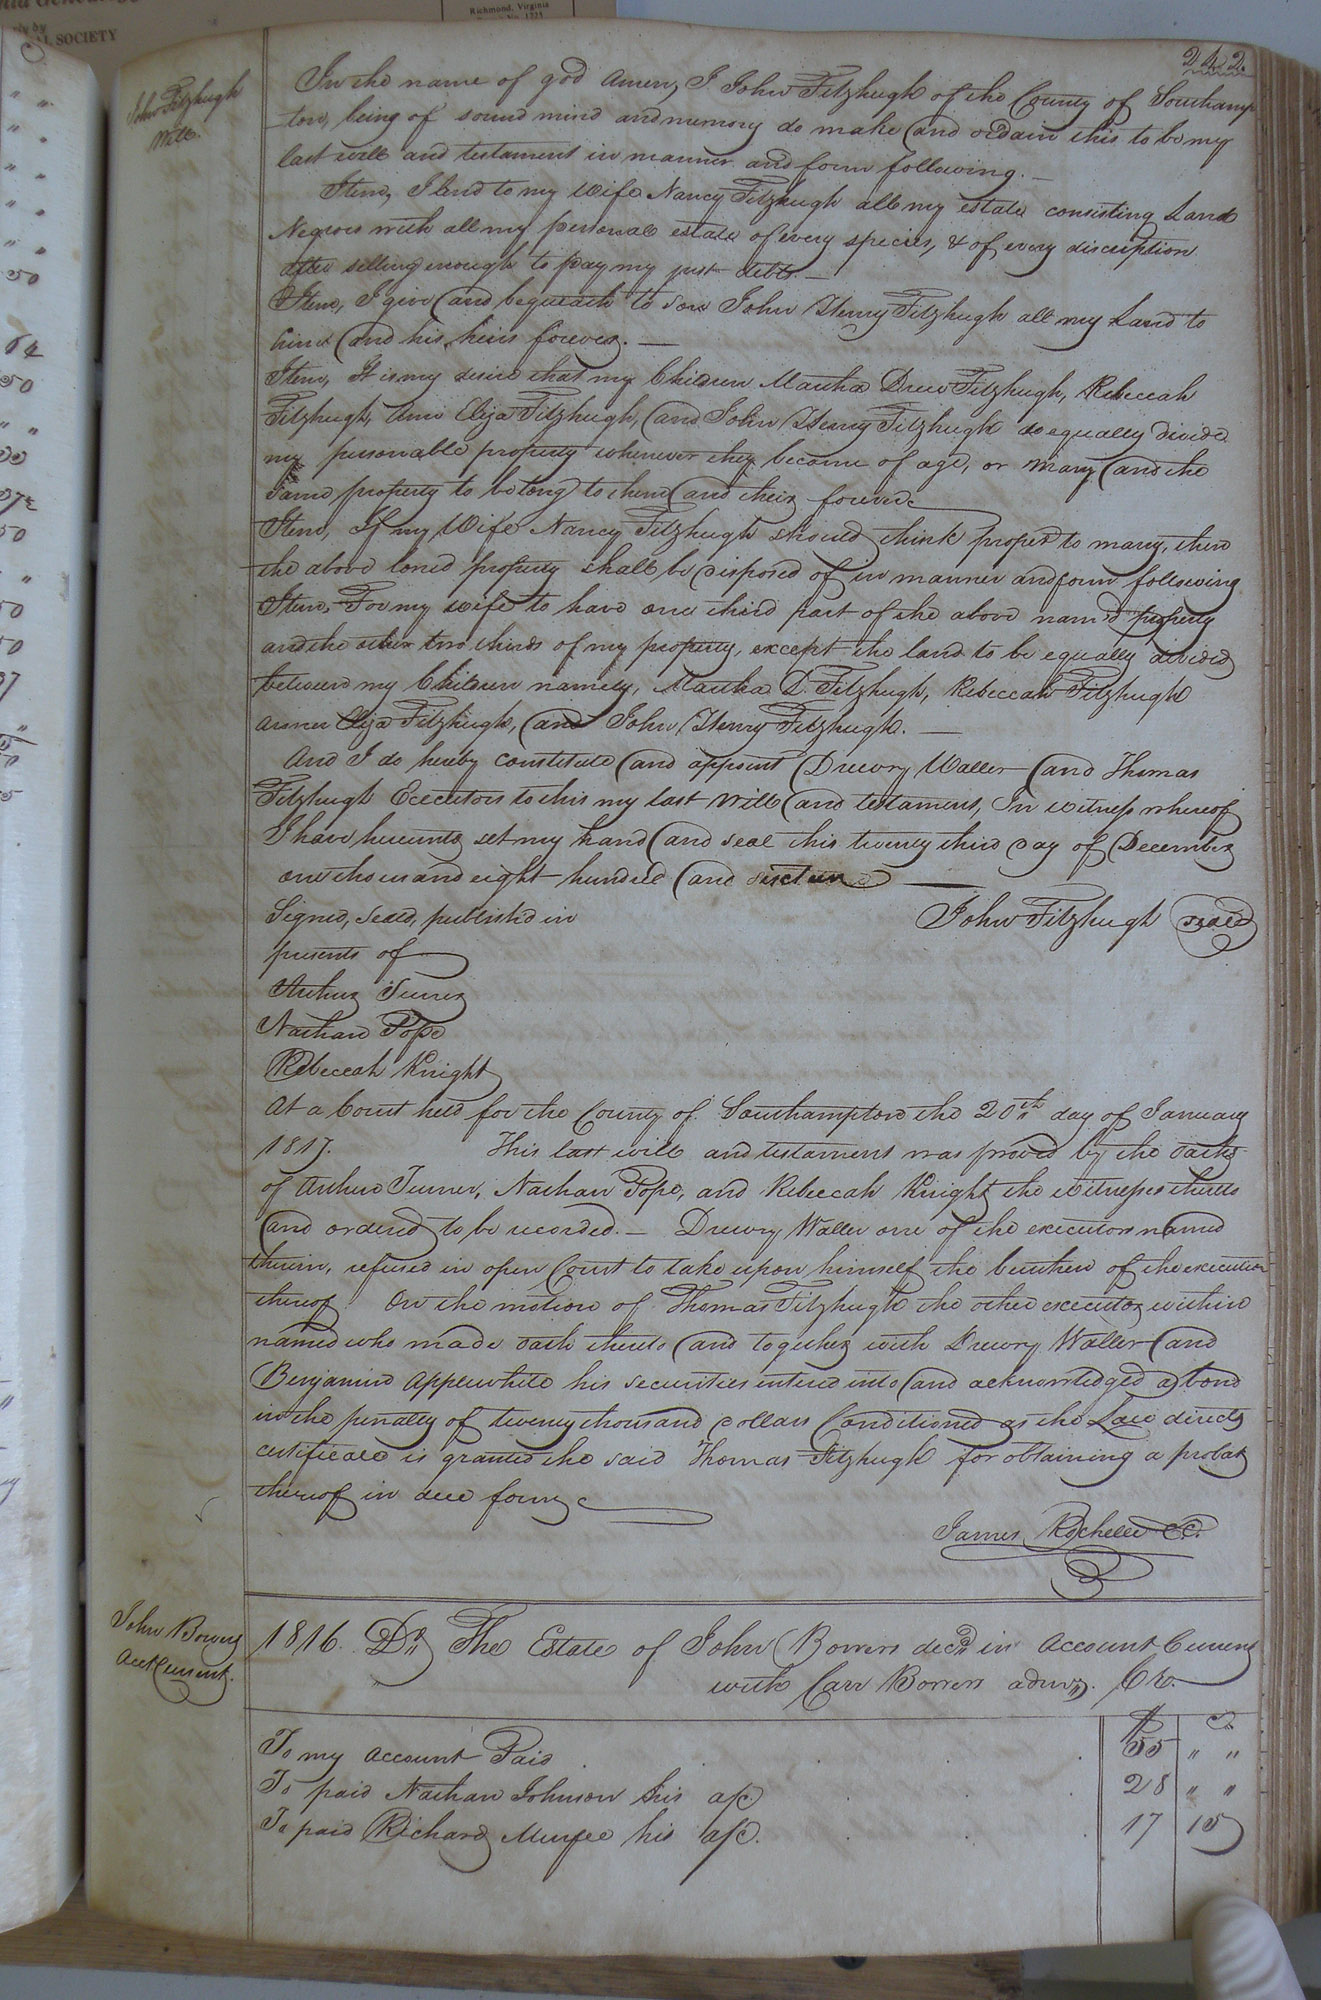 Richmond, Virginia
AL SOCIETY
242.
John Fitzhugh
Will.
In the name of god Amen, I John Fitzhugh of the County of Southamp
ton, being of sound mind and memory do make and ordain this to be my
last will and testament in manner and form following. —
Item, I lend to my Wife Nancy Fitzhugh all my estate consisting Land
Negroes with all my personal estate of every species, & of every discription
after selling enough to pay my just debts. —
Item, I give and bequeath to son John Henry Fitzhugh all my Land to
him and his heirs forever. —
Item, It is my desire that my Children Martha Drew Fitzhugh, Rebeccah
Fitzhugh, Ann Eliza Fitzhugh, and John Henry Fitzhugh do equally divide
my personable property whenever they become of age, or marry and the
same property to belong to them and their forever
Item, If my Wife Nancy Fitzhugh should think proper to marry, then
the above loned property shall be disposed of in manner and form following
Item. For my wife to have one third part of the above nam'd property
and the other two thirds of my property, except the land to be equally divided
between my Children namely, Martha D. Fitzhugh, Rebeccah Fitzhugh
Anner Eliza Fitzhugh, and John Henry Fitzhugh. —
And I do hereby constitute and appoint Drewry Waller and Thomas
Fitzhugh Executors to this my last will and testament, In witness whereof
I have hereunto set my hand and seal this twenty third day of December
one thousand eight hundred and sixteen —
Signed, seald, publish'd in
John Fitzhugh seald
presents of
Arthur Turner
Nathan Pope
Rebeccah Knight
At a Court held for the County of Southampton the 20th day of January
1817. This last will and testament was proved by the oaths
of Arthur Turner, Nathan Pope, and Rebeccah Knight the witnesses thereto
and ordered to be recorded. — Drewry Waller one of the executors named
therein, refused in open Court to take upon himself the burthen of the execution
thereof On the motion of Thomas Fitzhugh the other executor within
named who made oath thereto and together with Drewry Waller and
Benjamin Applewhite his securities entered into and acknowledged a bond
in the penalty of twenty thousand dollars Conditioned as the Law directs
certificate is granted the said Thomas Fitzhugh for obtaining a probat
thereof in due form
James Rochelle C.C.
John Bowers
Acct Current.
1816. Dr. The Estate of John Bowers decd. in Account Current
with Carr Bowers admr. Cr.
$ C
To my account Paid . . . 55 " "
To paid Nathan Johnson his a/c . . 28 " "
To paid Richard Murfee his a/c. . . 17 15